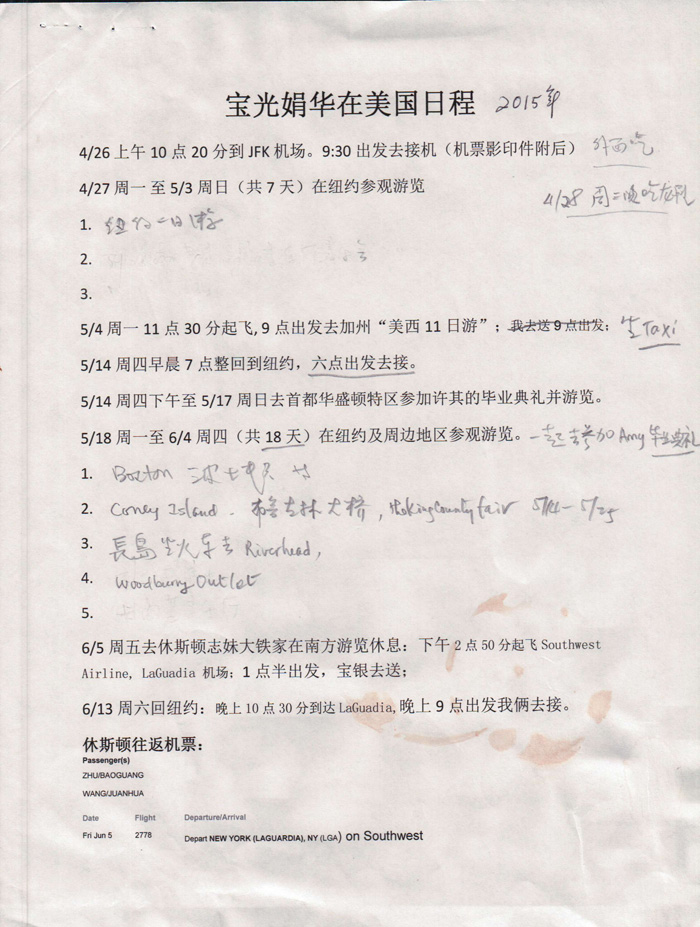 宝光娟华在美国日程 2015年
4/26 上午 10 点 20 分到 JFK 机场。9:30 出发去接机（机票影印件附后） 外面吃
4/27 周一 至 5/3 周日（共 7 天）在纽约参观游览
4/28 周二晚吃龙虾
1. 纽约一日游
2.
3.
5/4 周一 11 点 30 分起飞, 9 点出发去加州“美西 11 日游”；我去送 9 点出发; 坐Taxi
5/14 周四早晨 7 点整回到纽约，六点出发去接。
5/14 周四下午至 5/17 周日去首都华盛顿特区参加许其的毕业典礼并游览。
5/18 周一至 6/4 周四（共 18 天）在纽约及周边地区参观游览。一起去参加Amy毕业典礼
1. Boston 波士顿
2. Coney Island. 布鲁克林大桥, County fair
3. 長島坐火车去 Riverhead,
4. Woodbury Outlet
5.
6/5 周五去休斯顿志妹大铁家在南方游览休息: 下午 2 点 50 分起飞 Southwest
Airline, LaGuadia 机场; 1 点半出发，宝银去送;
6/13 周六回纽约: 晚上 10 点 30 分到达 LaGuadia, 晚上 9 点出发我俩去接。
休斯顿往返机票:
Passenger(s)
ZHU/BAOGUANG
WANG/JUANHUA
Date Flight Departure/Arrival
Fri Jun 5 2778 Depart NEW YORK (LAGUARDIA), NY (LGA) on Southwest